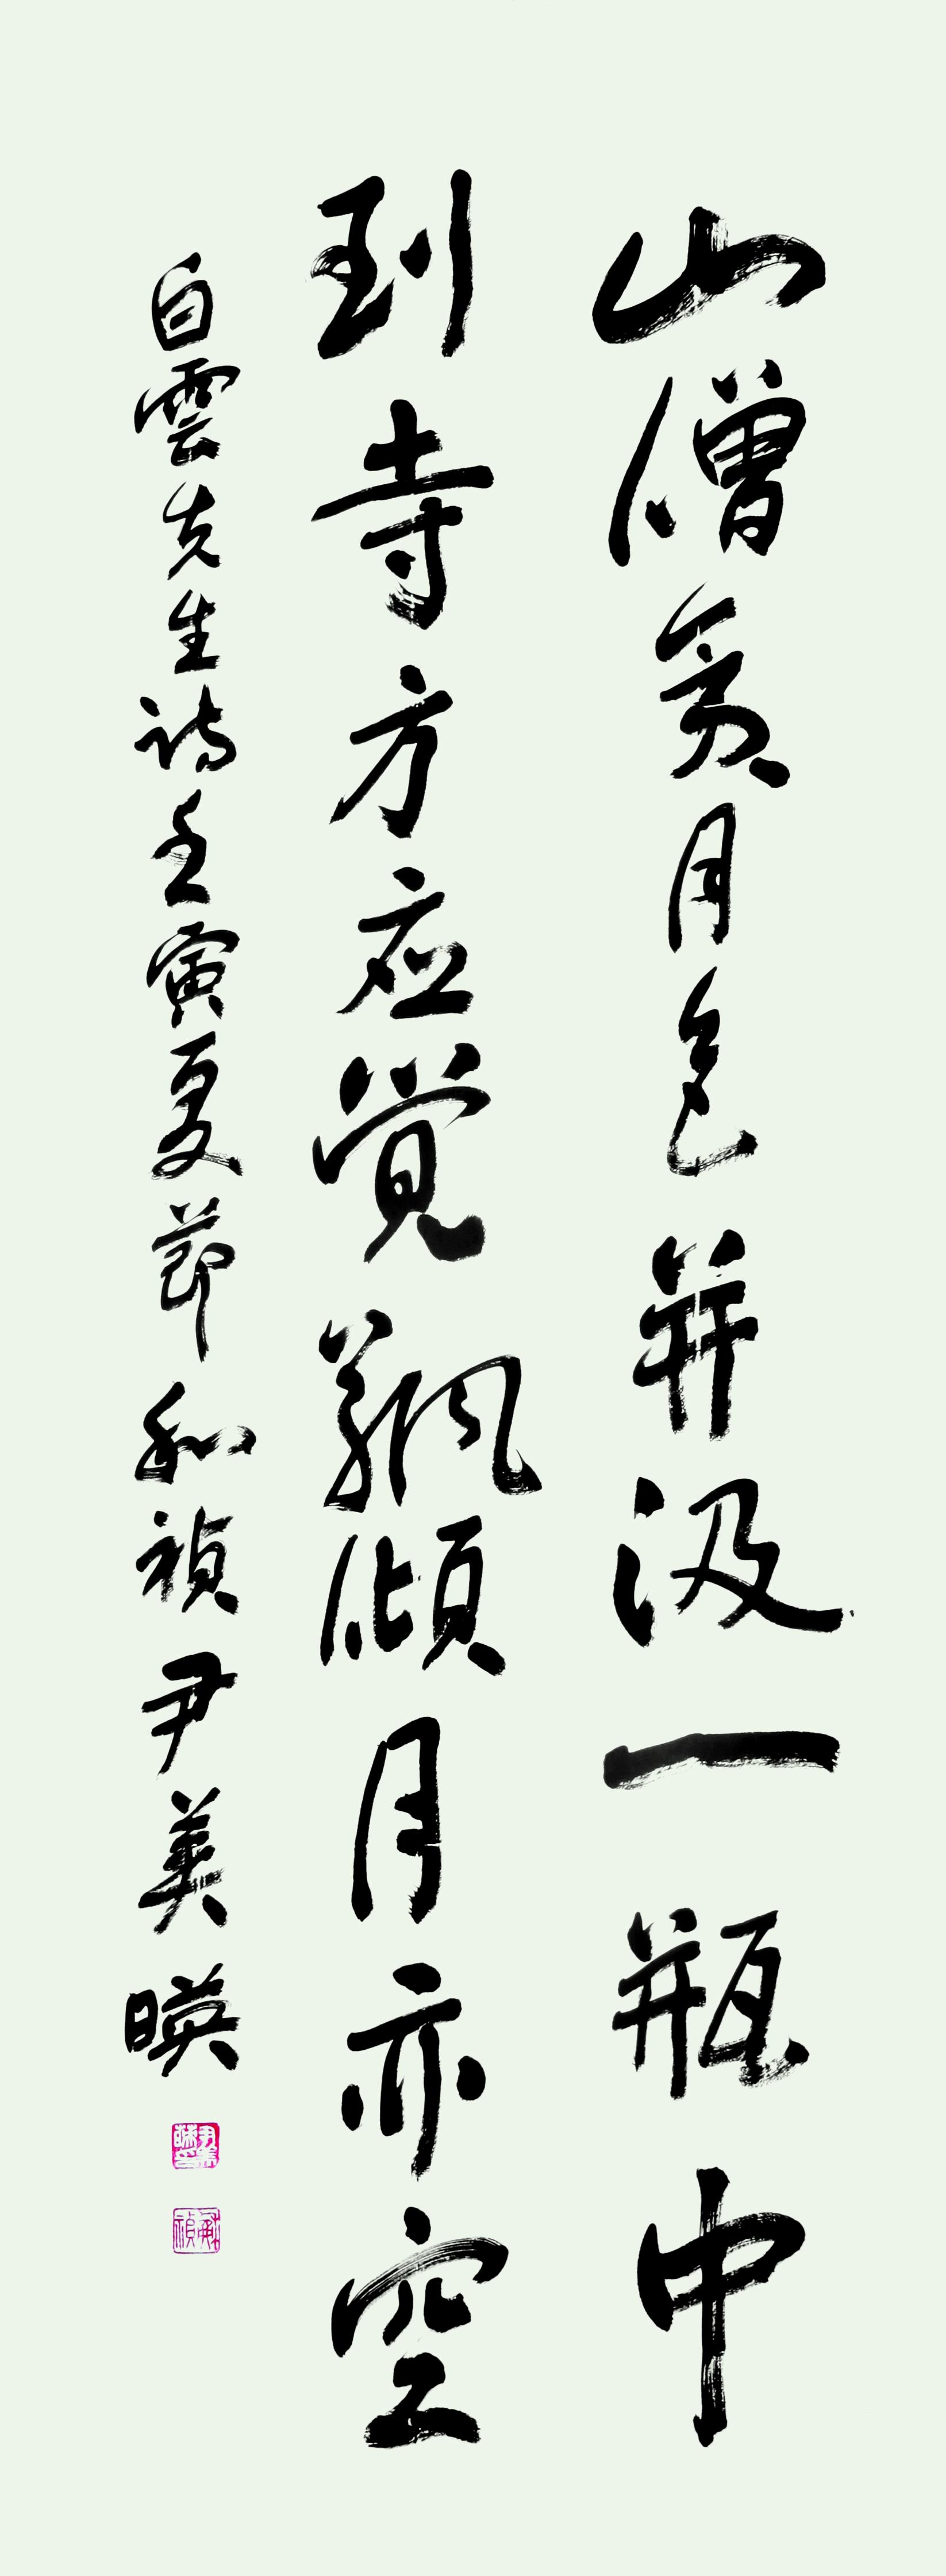 山僧貪月色并汲一瓶中
到寺方應覺瓶傾月亦空
白雲先生詩壬寅夏節和禎尹美暎
尹美暎印